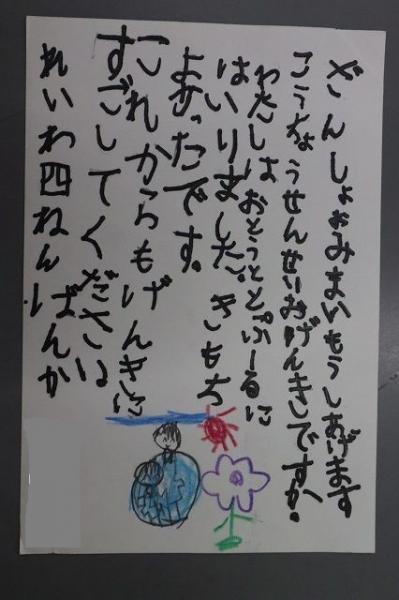 ざんしょおみまいもうしあげます
こうちょうせんせいおげんきですか。
わたしはおとうととぷーるに
はいりました。きもち
よかったです。
これからもげんきに
すごしてください
れいわ四ねんばんか